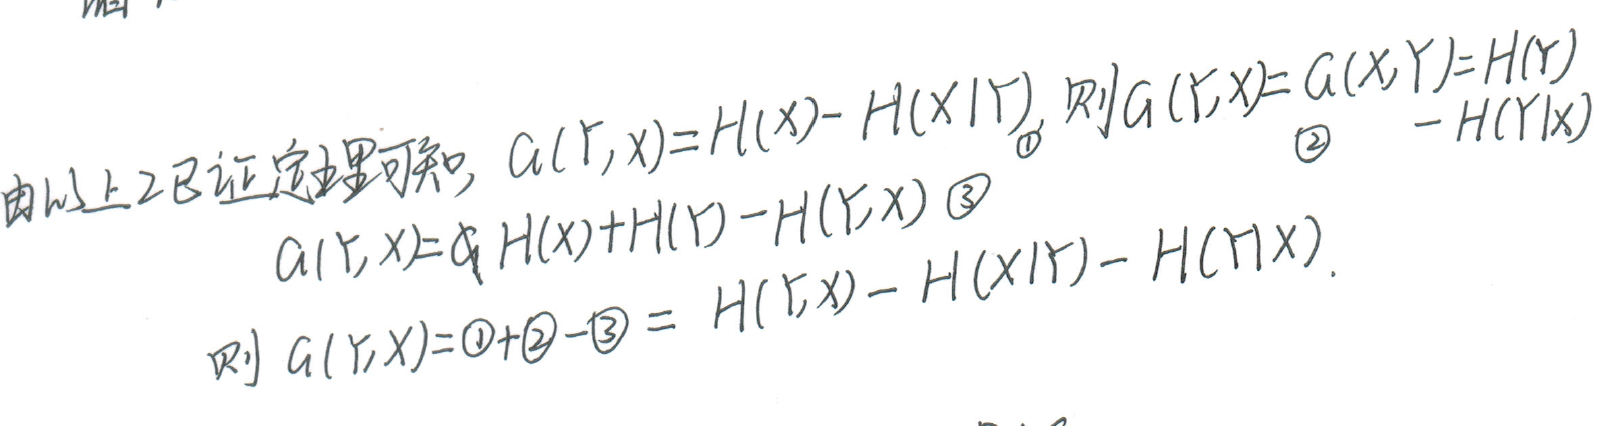 由以上2已证定理可知, G(Y,X)=H(X)-H(X|Y)①, 则G(Y,X)=G(X,Y)=H(Y)
② -H(Y|X)
G(Y,X)=H(X)+H(Y)-H(Y,X) ③
则 G(Y,X)=①+②-③= H(Y,X)-H(X|Y)-H(Y|X).